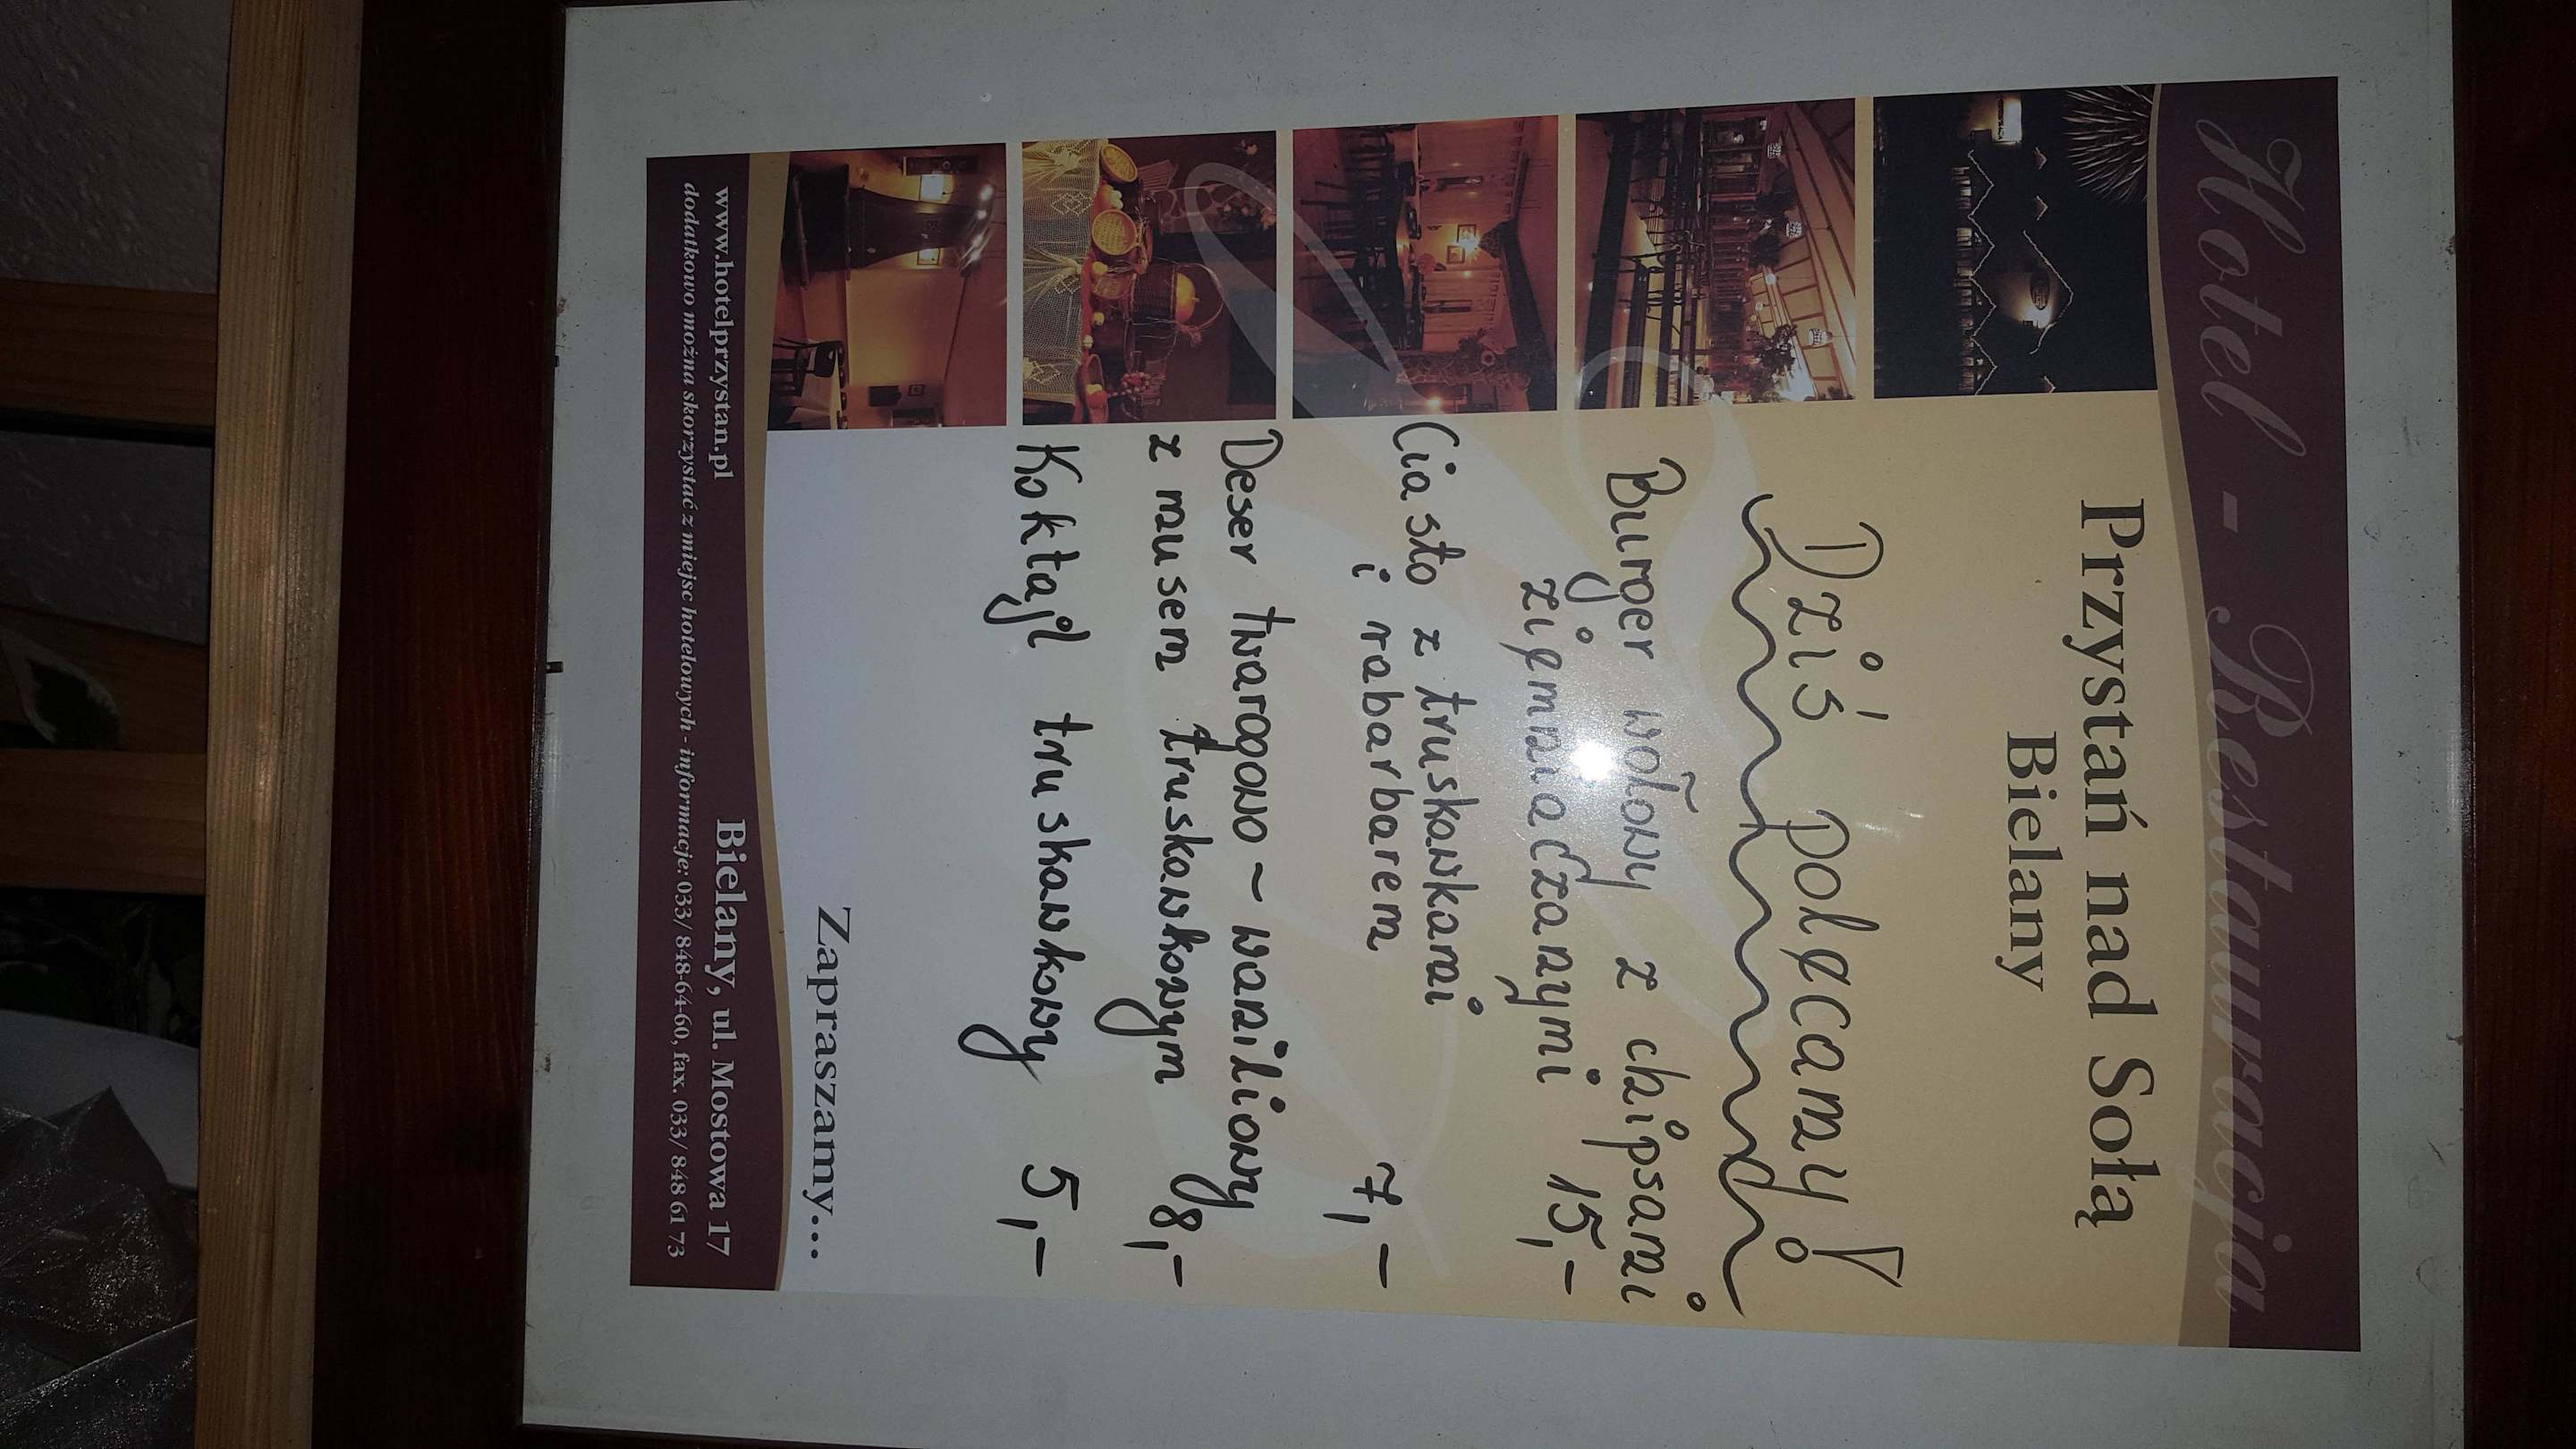 Hotel - Restauracja
Przystań nad Sołą
Bielany
Dziś polecamy!
Burger wołowy z chipsami
ziemniaczanymi 15,-
Ciasto z truskawkami
i rabarbarem 7,-
Deser twarogowo - waniliowy
z musem truskawkowym 8,-
Koktajl truskawkowy 5,-
Zapraszamy...
www.hotelprzystan.pl Bielany, ul. Mostowa 17
dodatkowo można skorzystać z miejsc hotelowych - informacje: 033/ 848-64-60, fax. 033/ 848 61 73